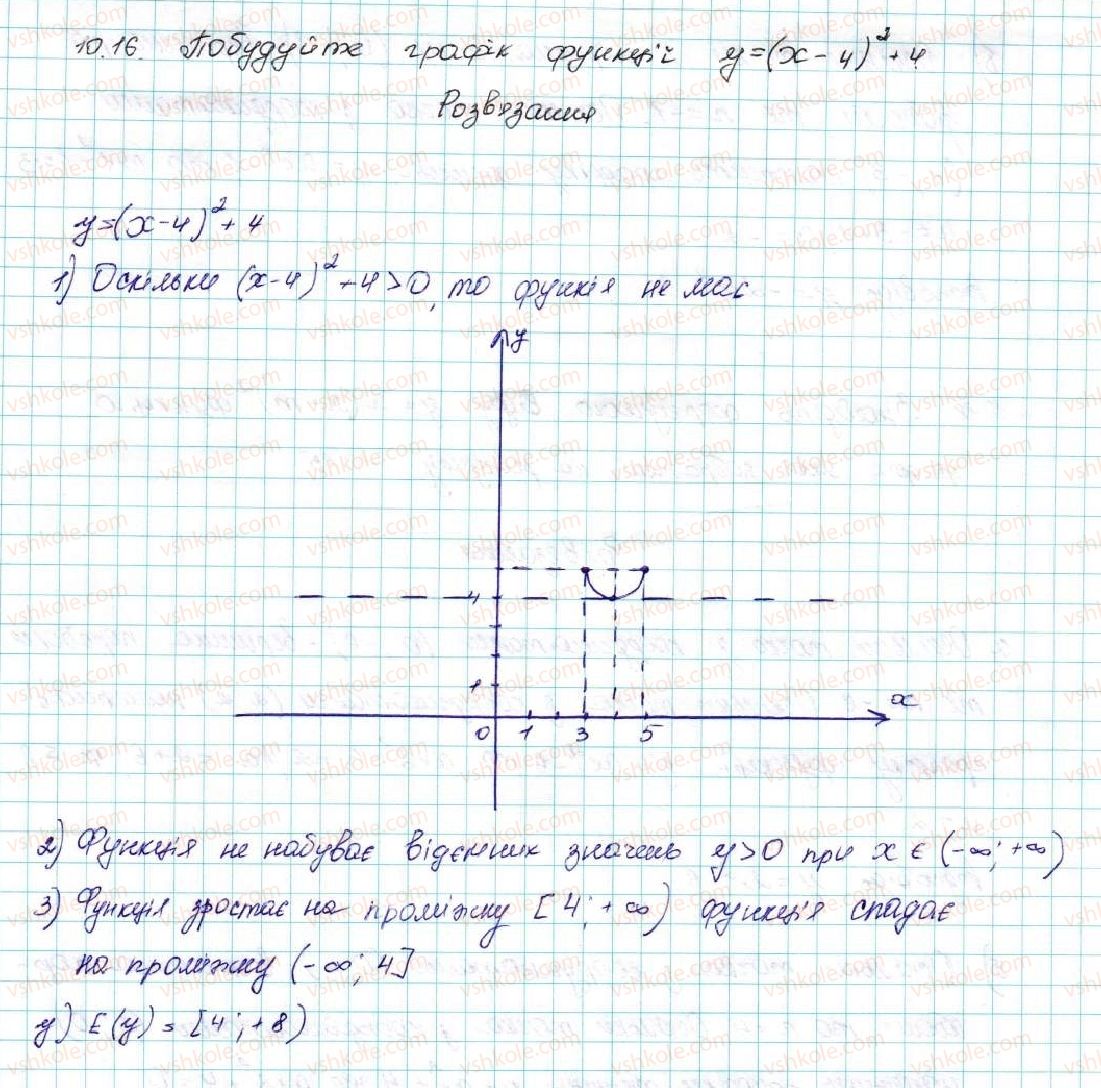 10.16. Побудуйте графік функції y=(x-4)²+4
Розв'язання
y=(x-4)²+4
1) Оскільки (x-4)²+4>0, то функія не має
y
4
1
x
0 1 3 5
2) Функція не набуває відємних значень y>0 при x ∈ (-∞; +∞)
3) Функція зростає на проміжку [4; +∞) функція спадає
на проміжку (-∞; 4]
у) E(y) = [4; +8)
vshkole.com